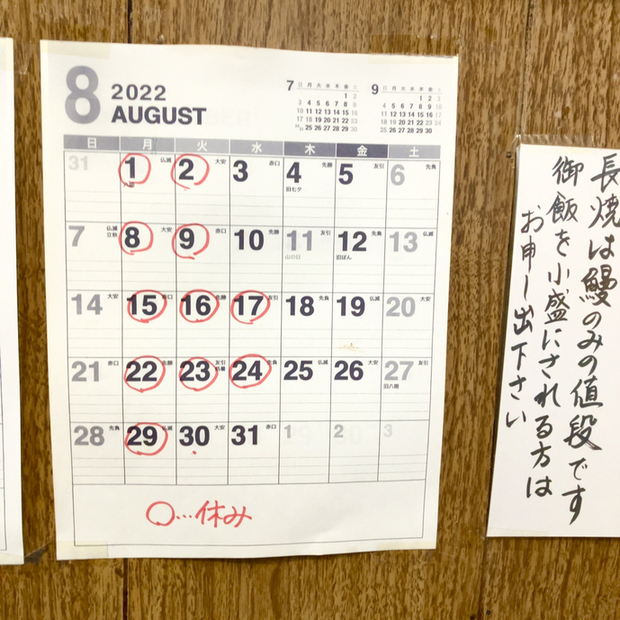 8 2022
AUGUST
7 日 月 火 水 木 金 土
1 2
3 4 5 6 7 8 9
10 11 12 13 14 15 16
17 18 19 20 21 22 23
24/31 25 26 27 28 29 30
9 日 月 火 水 木 金 土
1 2 3
4 5 6 7 8 9 10
11 12 13 14 15 16 17
18 19 20 21 22 23 24
25 26 27 28 29 30
日 月 火 水 木 金 土
31 1 仏滅 2 大安 3 赤口 4 先勝 5 友引 6 先負
旧七夕
7 仏滅 立秋 8 大安 9 赤口 10 先勝 11 友引 12 先負 13 仏滅
山の日 旧ぼん
14 大安 15 赤口 16 先勝 17 友引 18 先負 19 仏滅 20 大安
21 赤口 22 先勝 23 友引 処暑 24 先負 25 仏滅 26 大安 27 友引
旧八朔
28 先負 29 仏滅 30 大安 31 赤口 1 2 3
○…休み
長焼は鰻のみの値段です
御飯を小盛にされる方は
お申し出下さい